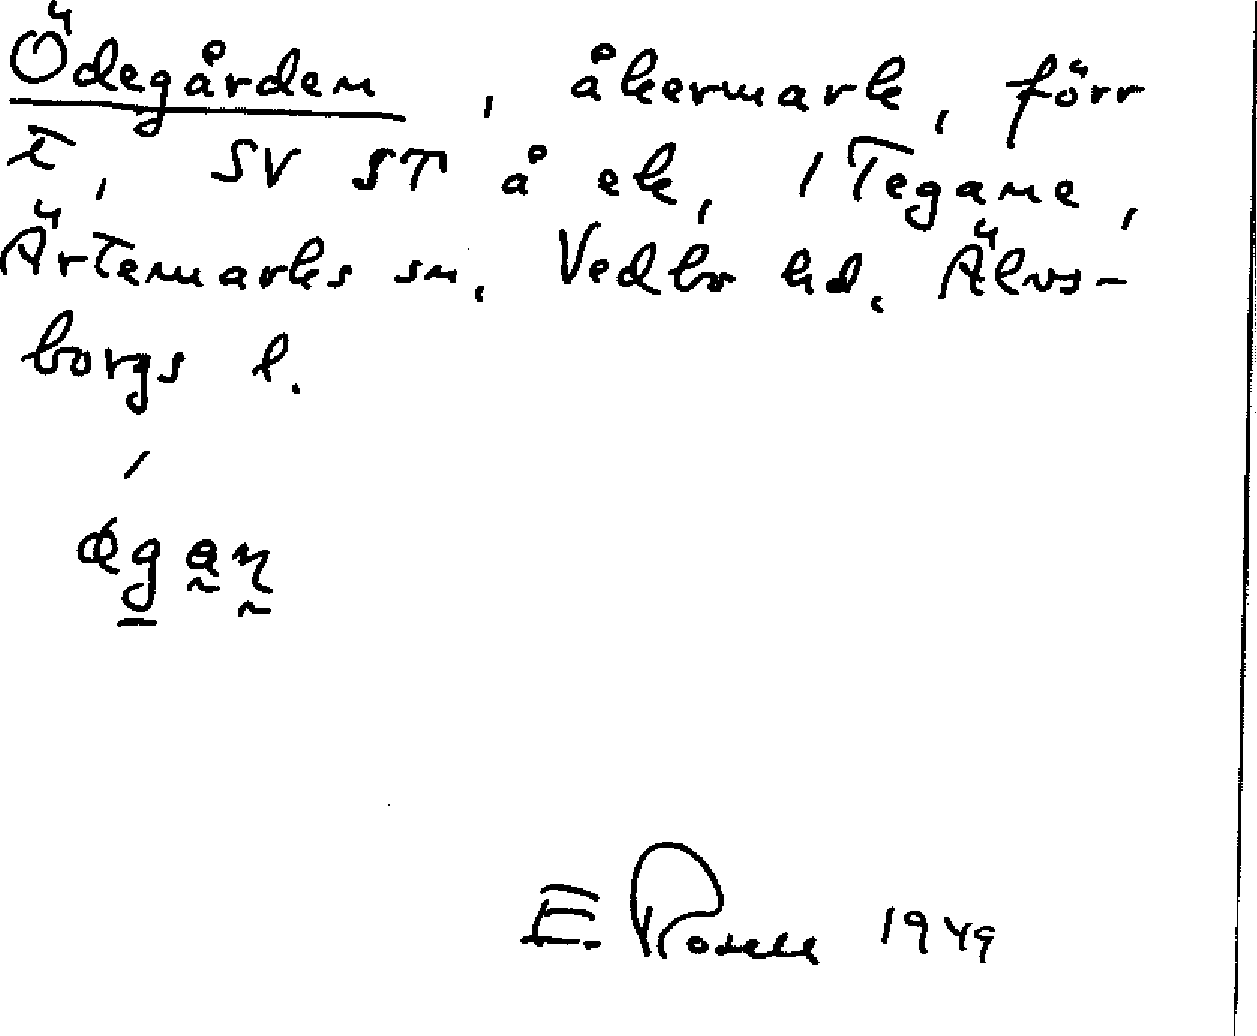 Ödegården, åkermark, förr
t, SV ST å ek, 1 Tegane,
Ärtemarks sn, Vedbo hd. Älvs-
borgs l.
E. Rosell 1949